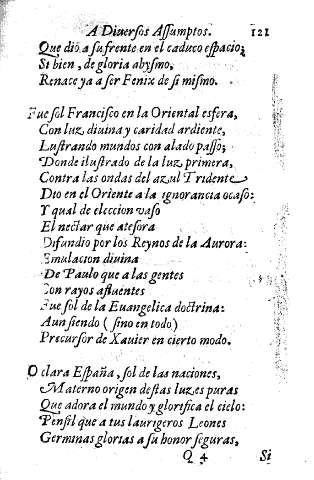 A Diuersos Assumptos. 121
Que dio a su frente en el caduco espacio;
Si bien, de gloria abysmo,
Renace ya a ser Fenix de si mismo.
Fue sol Francisco en la Oriental esfera,
Con luz diuina y caridad ardiente,
Lustrando mundos con alado passo;
Donde ilustrado de la luz primera,
Contra las ondas del azul Tridente
Dio en el Oriente a la ignorancia ocaso:
Y qual de eleccion vaso
El nectar que atesora
Difundio por los Reynos de la Aurora:
Emulacion diuina
De Paulo que a las gentes
Con rayos afluentes
Fue sol de la Euangelica doctrina:
Aun siendo (sino en todo)
Precursor de Xauier en cierto modo.
O clara España, sol de las naciones,
Materno origen destas luzes puras
Que adora el mundo y glorifica el cielo:
Pensil que a tus laurigeros Leones
Germinas glorias a su honor seguras,
Q 4 Si